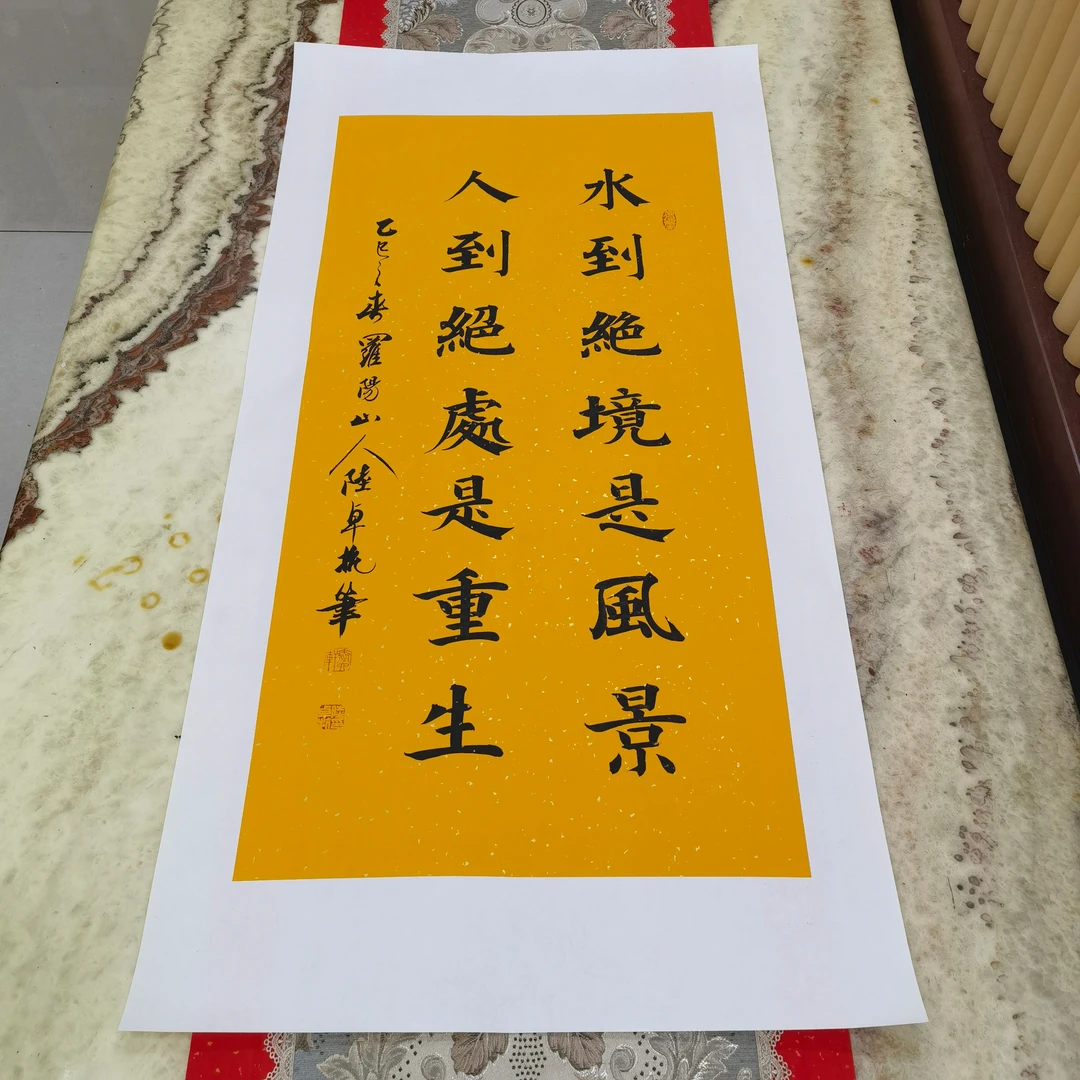 水到絶境是風景
人到絕處是重生
乙巳之春羅陽山人陸卓執筆